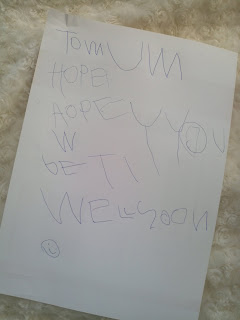 TomUm
HOPE
HOPE YYOU
W
bE
WELLSOON